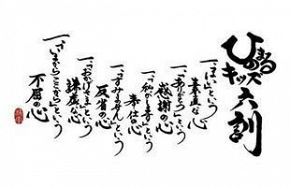 ひまわり
キッズ六訓
一、「はい」という
素直な心
一、「ありがとう」という
感謝の心
一、「私がします」という
奉仕の心
一、「すみません」という
反省の心
一、「おかげさま」という
謙虚な心
一、「さいまらここから」という
不屈の心